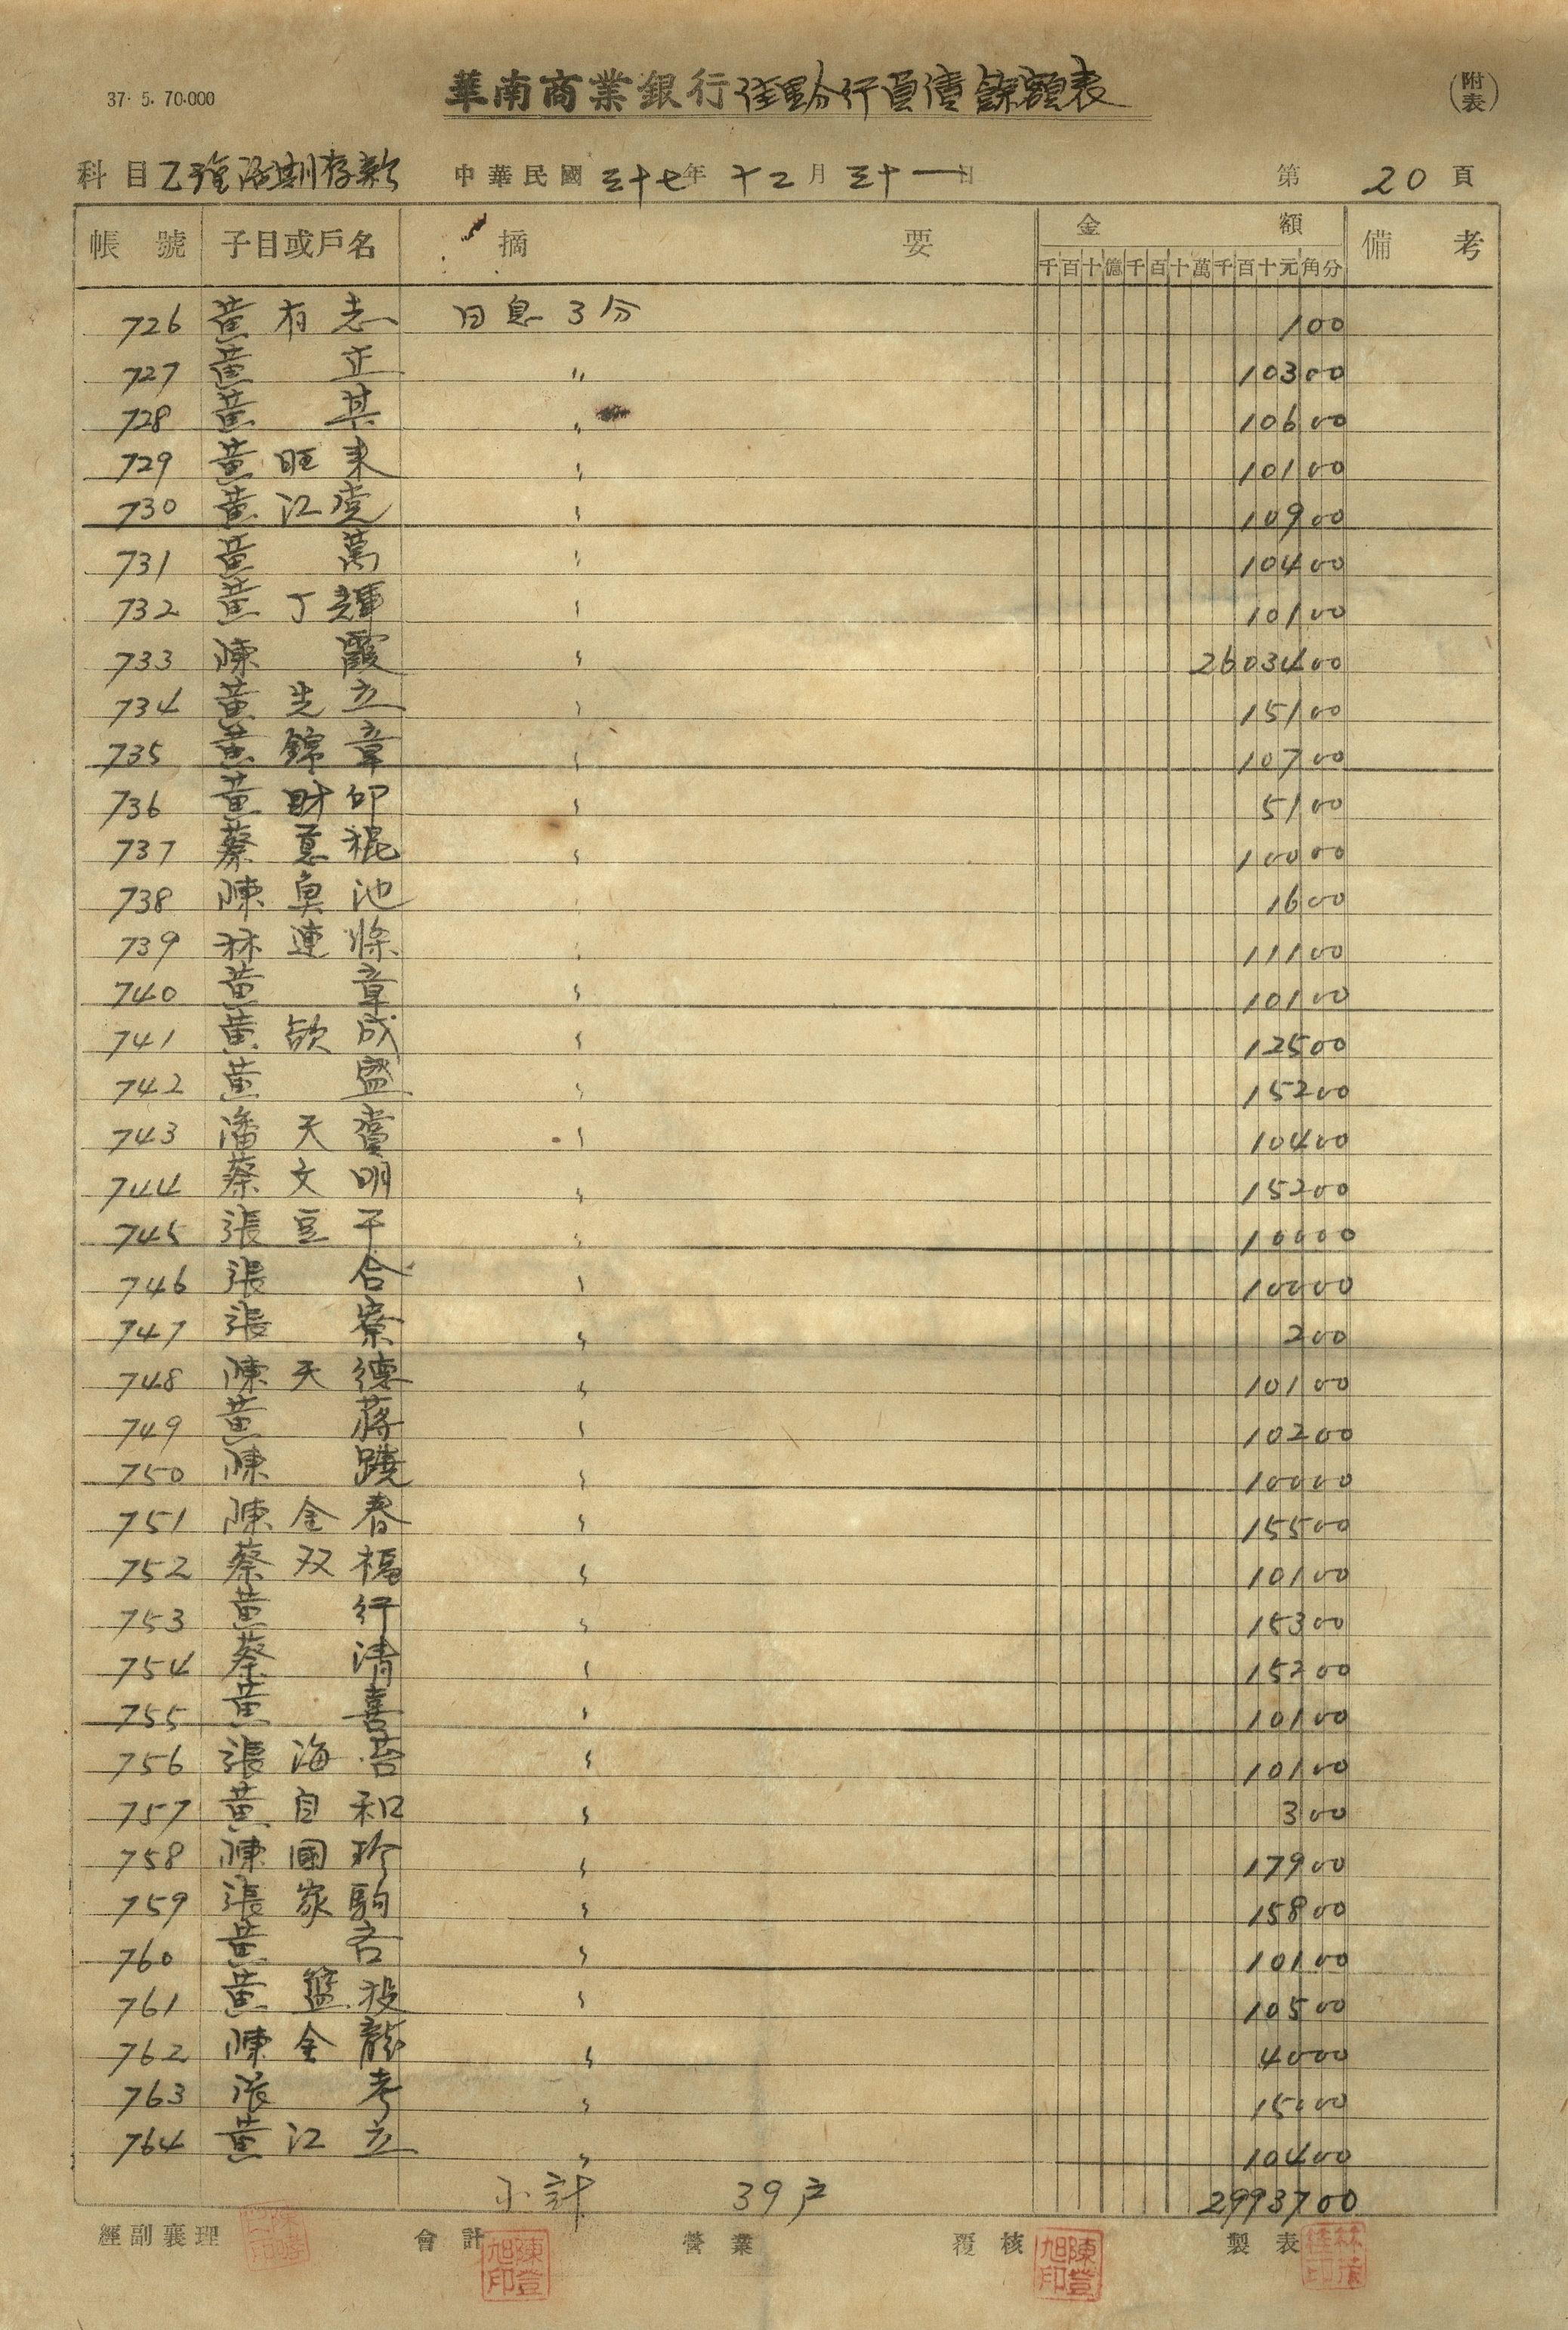 37. 5. 70.000
華南商業銀行佳里分行負債餘額表
(附表)
科目 乙種活期存款 中華民國三十七年十二月三十一日 第20頁
帳號 子目或戶名 摘要 金額 備考
千百十億千百十萬千百十元角分
726 黃有志 日息3分 100
727 黃 正 〃 10300
728 黃 其 〃 10600
729 黃旺來 〃 10100
730 黃江 〃 10900
731 黃 萬 〃 10400
732 黃丁輝 〃 10100
733 陳 霞 〃 2603400
734 黃先立 〃 15100
735 黃錦章 〃 10700
736 黃財卯 〃 5100
737 蔡 〃 10000
738 陳 池 〃 1600
739 林連 〃 11100
740 黃 章 〃 10100
741 黃 成 〃 12500
742 黃 盛 〃 15200
743 潘天 〃 10400
744 蔡文明 〃 15200
745 張豆干 〃 10000
746 張 合 〃 10000
747 張 寮 〃 200
748 陳天德 〃 10100
749 黃 蔣 〃 10200
750 陳 蹺 〃 10000
751 陳金春 〃 15500
752 蔡双福 〃 10100
753 黃 行 〃 15300
754 蔡 清 〃 15200
755 黃 喜 〃 10100
756 張海 〃 10100
757 黃自和 〃 300
758 陳國珍 〃 17900
759 張家駒 〃 15800
760 黃 〃 10100
761 黃籃投 〃 10500
762 陳金龍 〃 4000
763 張 考 〃 15000
764 黃江立 〃 10400
小計 39户 2993700
經副襄理 會計 營業 覆核 製表
陳登旭印 陳登旭印